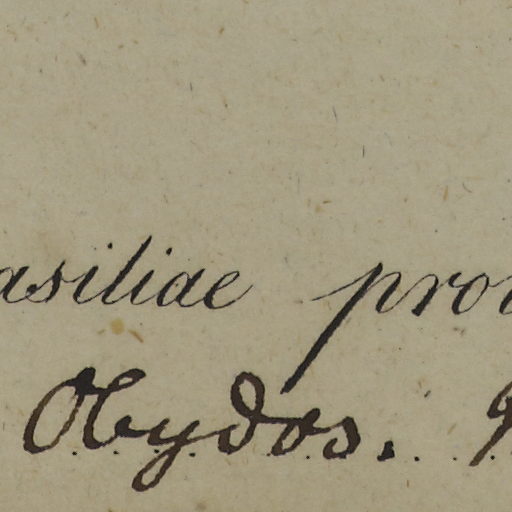 asiliae pro
Obydos.